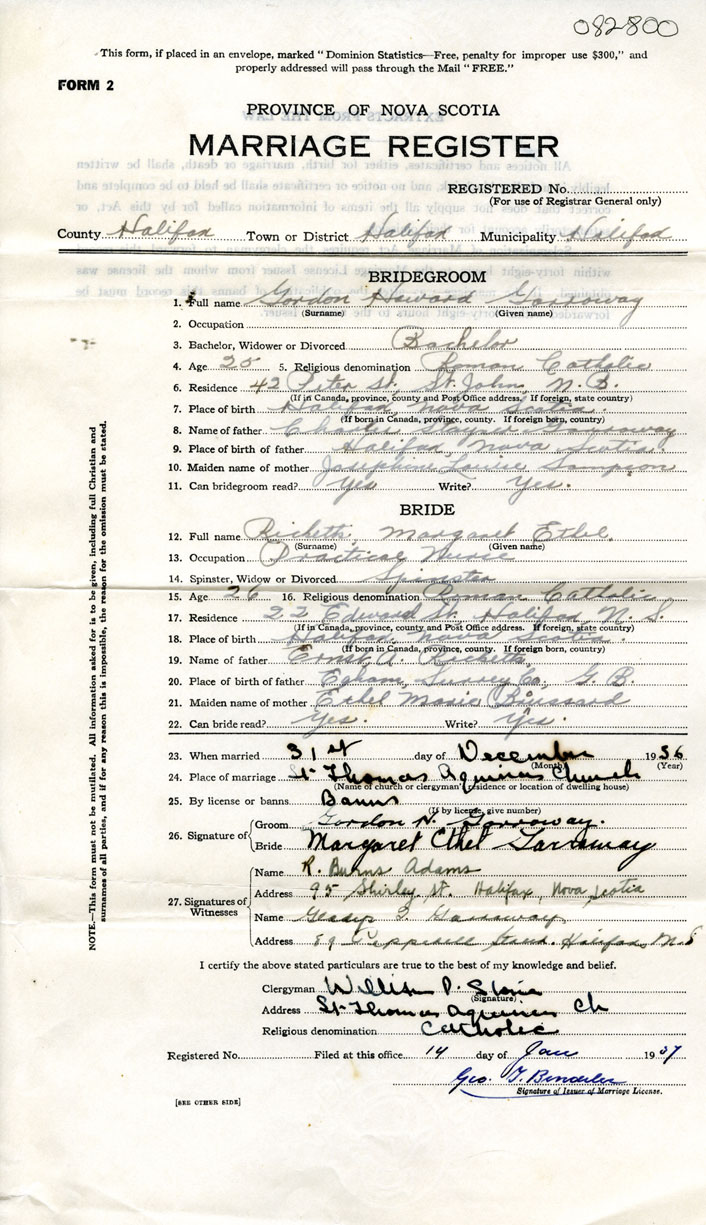 082800
This form, if placed in an envelope, marked "Dominion Statistics—Free, penalty for improper use $300," and
properly addressed will pass through the Mail "FREE."
FORM 2
PROVINCE OF NOVA SCOTIA
MARRIAGE REGISTER
REGISTERED No.
(For use of Registrar General only)
County Halifax Town or District Halifax Municipality Halifax
BRIDEGROOM
1. Full name Gordon Howard Garroway
(Surname) (Given name)
2. Occupation
3. Bachelor, Widower or Divorced Bachelor
4. Age 25 5. Religious denomination Roman Catholic
6. Residence 42 Peter St. St. John, N. B.
(If in Canada, province, county and Post Office address. If foreign, state country)
7. Place of birth Halifax, Nova Scotia.
(If born in Canada, province, county. If foreign born, country)
8. Name of father Charles Garroway
9. Place of birth of father Halifax Nova Scotia.
10. Maiden name of mother Josephine Louise Sampson
11. Can bridegroom read? Yes Write? Yes.
BRIDE
12. Full name Ricketts Margaret Ethel.
(Surname) (Given name)
13. Occupation Practical Nurse
14. Spinster, Widow or Divorced Spinster
15. Age 26 16. Religious denomination Roman Catholic
17. Residence 22 Edward St. Halifax N. S.
(If in Canada, province, county and Post Office address. If foreign, state country)
18. Place of birth Halifax, Nova Scotia.
(If born in Canada, province, county. If foreign born, country)
19. Name of father Ernst A. Ricketts
20. Place of birth of father Egham, Surrey Co, G. B.
21. Maiden name of mother Ethel Marie
22. Can bride read? Yes. Write? Yes.
23. When married 31st day of December 1936
(Month) (Year)
24. Place of marriage St Thomas Aquinas Church
(Name of church or clergyman's residence or location of dwelling house)
25. By license or banns Banns
(If by license, give number)
26. Signature of Groom Gordon H. Garroway.
Bride Margaret Ethel Garroway
27. Signatures of Witnesses
Name R. Burns Adams
Address 95 Shirley St. Halifax, Nova Scotia
Name Garroway
Address 89 Halifax N.S
I certify the above stated particulars are true to the best of my knowledge and belief.
Clergyman William P.
(Signature)
Address St Thomas Aquinas Ch
Religious denomination Catholic
Registered No. Filed at this office 14 day of Jan 1937
Geo.
Signature of Issuer of Marriage License.
[SEE OTHER SIDE]
NOTE.—This form must not be mutilated. All information asked for is to be given, including full Christian and
surnames of all parties, and if for any reason this is impossible, the reason for the omission must be stated.